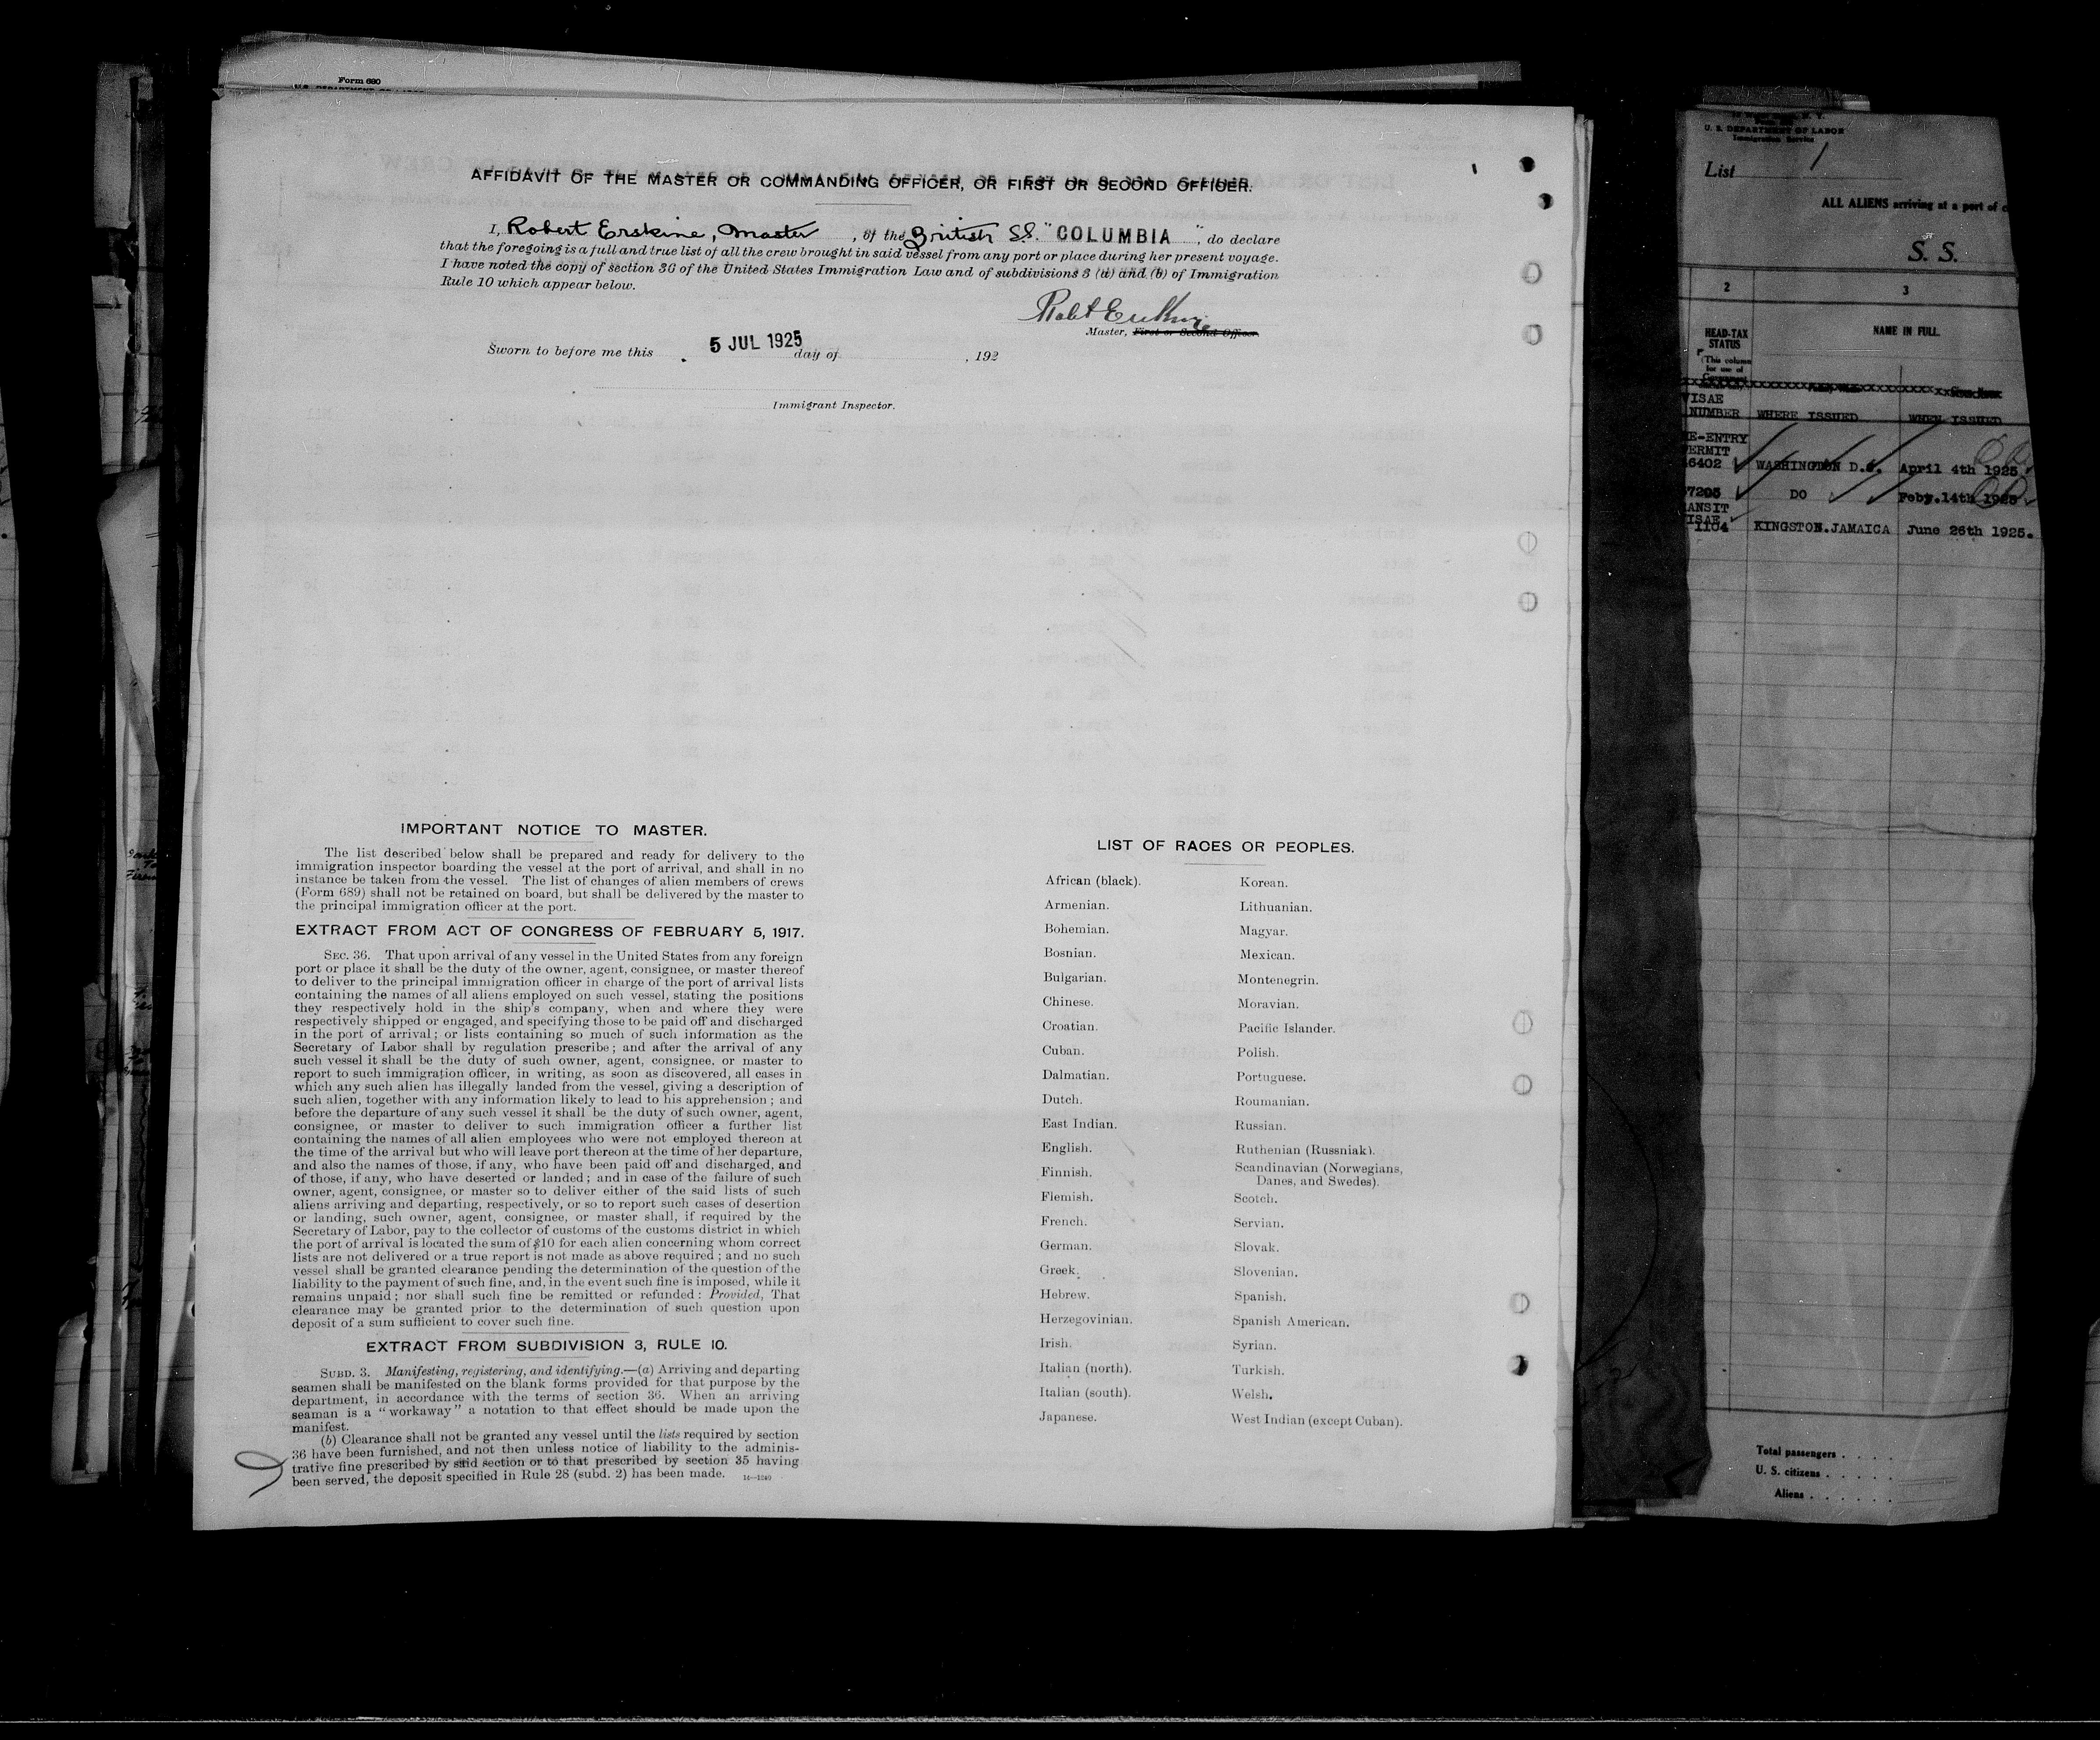 Form 680
AFFIDAVIT OF THE MASTER OR COMMANDING OFFICER, OR FIRST OR SECOND OFFICER.
I, Robert Erskine, Master, of the British S.S. "COLUMBIA", do declare
that the foregoing is a full and true list of all the crew brought in said vessel from any port or place during her present voyage.
I have noted the copy of section 36 of the United States Immigration Law and of subdivisions 3 (a) and (b) of Immigration
Rule 10 which appear below.
Robt Erskine
Master, First or Second Officer.
Sworn to before me this 5 JUL 1925 day of , 192
Immigrant Inspector.
IMPORTANT NOTICE TO MASTER.
The list described below shall be prepared and ready for delivery to the
immigration inspector boarding the vessel at the port of arrival, and shall in no
instance be taken from the vessel. The list of changes of alien members of crews
(Form 689) shall not be retained on board, but shall be delivered by the master to
the principal immigration officer at the port.
EXTRACT FROM ACT OF CONGRESS OF FEBRUARY 5, 1917.
SEC. 36. That upon arrival of any vessel in the United States from any foreign
port or place it shall be the duty of the owner, agent, consignee, or master thereof
to deliver to the principal immigration officer in charge of the port of arrival lists
containing the names of all aliens employed on such vessel, stating the positions
they respectively hold in the ship's company, when and where they were
respectively shipped or engaged, and specifying those to be paid off and discharged
in the port of arrival; or lists containing so much of such information as the
Secretary of Labor shall by regulation prescribe; and after the arrival of any
such vessel it shall be the duty of such owner, agent, consignee, or master to
report to such immigration officer, in writing, as soon as discovered, all cases in
which any such alien has illegally landed from the vessel, giving a description of
such alien, together with any information likely to lead to his apprehension; and
before the departure of any such vessel it shall be the duty of such owner, agent,
consignee, or master to deliver to such immigration officer a further list
containing the names of all alien employees who were not employed thereon at
the time of the arrival but who will leave port thereon at the time of her departure,
and also the names of those, if any, who have been paid off and discharged, and
of those, if any, who have deserted or landed; and in case of the failure of such
owner, agent, consignee, or master so to deliver either of the said lists of such
aliens arriving and departing, respectively, or so to report such cases of desertion
or landing, such owner, agent, consignee, or master shall, if required by the
Secretary of Labor, pay to the collector of customs of the customs district in which
the port of arrival is located the sum of $10 for each alien concerning whom correct
lists are not delivered or a true report is not made as above required; and no such
vessel shall be granted clearance pending the determination of the question of the
liability to the payment of such fine, and, in the event such fine is imposed, while it
remains unpaid; nor shall such fine be remitted or refunded: Provided, That
clearance may be granted prior to the determination of such question upon
deposit of a sum sufficient to cover such fine.
EXTRACT FROM SUBDIVISION 3, RULE 10.
SUBD. 3. Manifesting, registering, and identifying.—(a) Arriving and departing
seamen shall be manifested on the blank forms provided for that purpose by the
department, in accordance with the terms of section 36. When an arriving
seaman is a "workaway" a notation to that effect should be made upon the
manifest.
(b) Clearance shall not be granted any vessel until the lists required by section
36 have been furnished, and not then unless notice of liability to the adminis-
trative fine prescribed by said section or to that prescribed by section 35 having
been served, the deposit specified in Rule 28 (subd. 2) has been made.
LIST OF RACES OR PEOPLES.
African (black).
Armenian.
Bohemian.
Bosnian.
Bulgarian.
Chinese.
Croatian.
Cuban.
Dalmatian.
Dutch.
East Indian.
English.
Finnish.
Flemish.
French.
German.
Greek.
Hebrew.
Herzegovinian.
Irish.
Italian (north).
Italian (south).
Japanese.
Korean.
Lithuanian.
Magyar.
Mexican.
Montenegrin.
Moravian.
Pacific Islander.
Polish.
Portuguese.
Roumanian.
Russian.
Ruthenian (Russniak).
Scandinavian (Norwegians,
Danes, and Swedes).
Scotch.
Servian.
Slovak.
Slovenian.
Spanish.
Spanish American.
Syrian.
Turkish.
Welsh.
West Indian (except Cuban).
U. S. DEPARTMENT OF LABOR
Immigration Service
List 1
ALL ALIENS arriving at a port of
S. S.
2 3
HEAD-TAX
STATUS
(This column
for use of
NAME IN FULL.
ISAE
NUMBER WHERE ISSUED WHEN ISSUED
E-ENTRY
ERMIT
6402 WASHINGTON D.C. April 4th 1925
7205 DO Feby.14th 1925
ANSIT
ISAE
1104 KINGSTON.JAMAICA June 26th 1925.
Total passengers . . . .
U. S. citizens . . . . .
Aliens . . . . . .